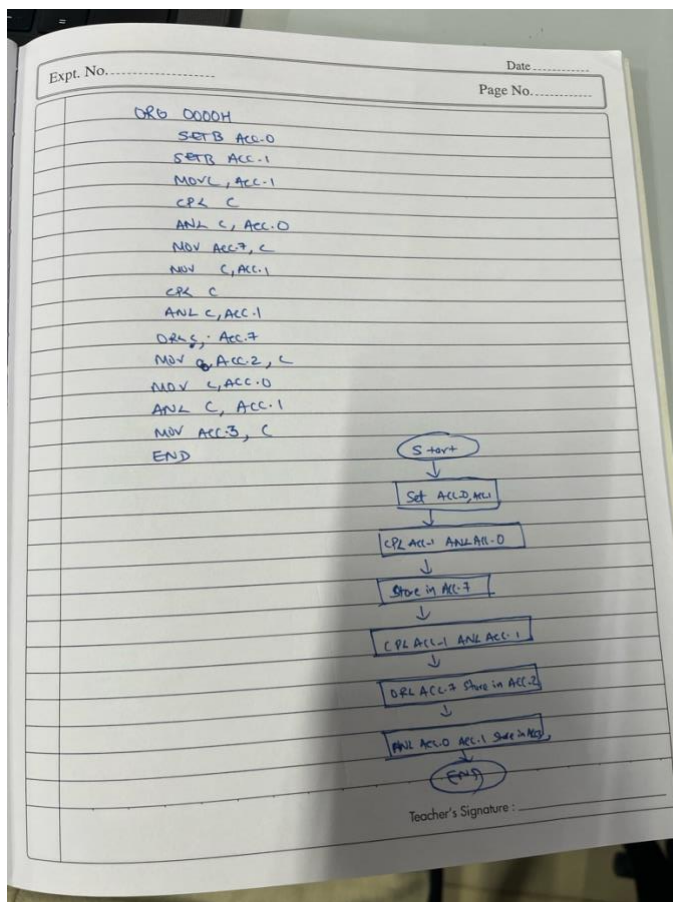 Expt. No.
Date
Page No.
ORG 0000H
SETB ACC.0
SETB ACC.1
MOVC, ACC.1
CPL C
ANL C, ACC.0
MOV ACC.7, C
MOV C, ACC.1
CPL C
ANL C, ACC.1
ORL C, ACC.7
MOV ACC.2, C
MOV C, ACC.0
ANL C, ACC.1
MOV ACC.3, C
END
Start
Set ACC.0, ACC.1
CPL ACC.1 ANL ACC.0
Store in ACC.7
CPL ACC.1 ANL ACC.1
ORL ACC.7 Store in ACC.2
ANL ACC.0 ACC.1 Store in
END
Teacher's Signature :